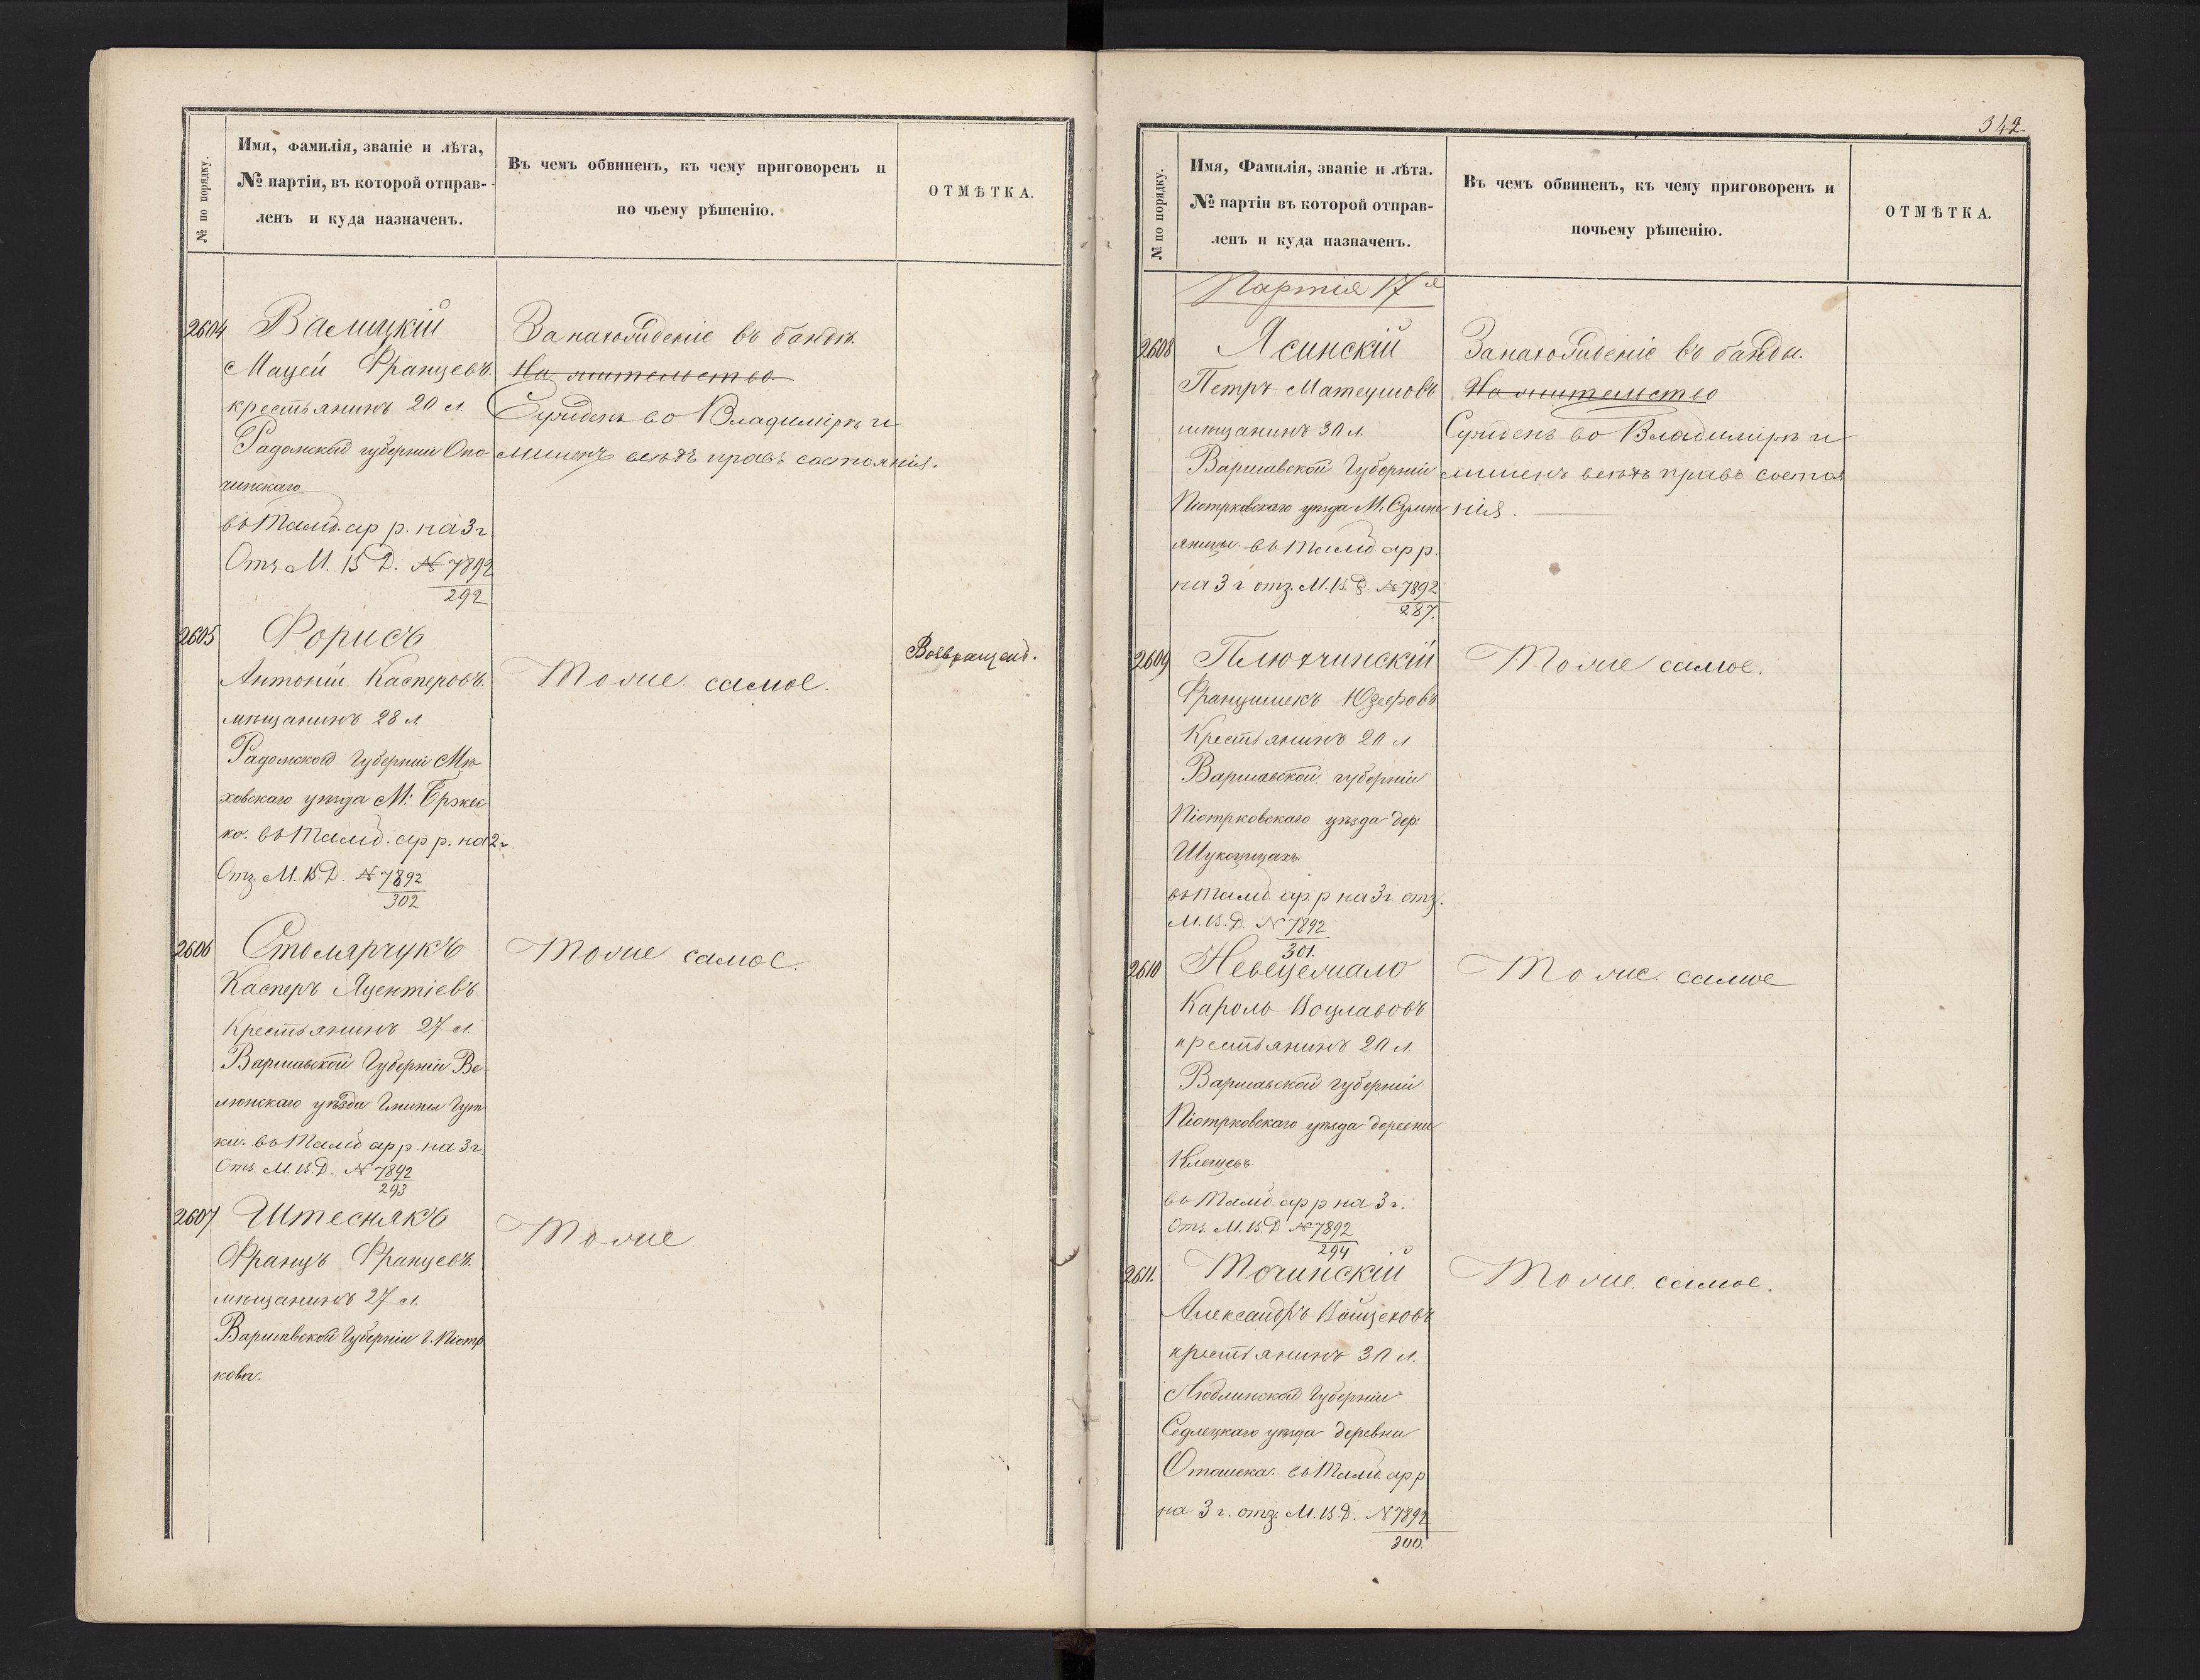 № по порядку.
Имя, фамилія, званіе и лѣта,
№ партіи, въ которой отправ-
ленъ и куда назначенъ.
Въ чемъ обвиненъ, къ чему приговоренъ и
по чьему рѣшенію.
ОТМѢТКА.
2604
Валицкій
Мацей Францевъ.
крестьянинъ 20 л.
Радомской губерніи Опо-
чинскаго
въ Тамб. ар р. на 3 г
Отз М. В Д. № 7892
292
За нахожденіе въ бандѣ.
На жительство
Сужденъ во Владимірѣ и
лишенъ всѣхъ правъ состоянія.
2605
Форисъ
Антоній Касперовъ.
мѣщанинъ 28 л
Радомской Губерніи Мѣ
ховскаго уѣзда М: Бржес
ко. въ Тамб. ар р. на 2 г
Отз. М. В. Д. № 7892
302
Тоже самое.
Возвращенъ.
2606
Столярчукъ
Касперъ Яцентіевъ
Крестьянинъ 27 л.
Варшавской Губерніи Ве-
люнскаго уѣзда Гмины Гут
ки. въ Тамб ар р. на 3 г.
Отз. М. В. Д. № 7892
293
Тоже самое.
2607
Штеснякъ
Францъ Францевъ.
мѣщанинъ 27 л.
Варшавской Губерніи г. Піотр
кова.
Тоже.
342.
№ по порядку.
Имя, Фамилія, званіе и лѣта.
№ партіи въ которой отправ-
ленъ и куда назначенъ.
Въ чемъ обвиненъ, къ чему приговоренъ и
почьему рѣшенію.
ОТМѢТКА.
Партія 17 я
2608
Ясинскій
Петръ Матеушовъ
мѣщанинъ 30 л.
Варшавской Губерніи
Піотрковскаго уѣзда М. Сулме
яницы. въ Тамб ар р.
на 3 г отз. М. В. Д. № 7892
287.
За нахожденіе въ банды.
На жительство
Сужденъ во Владимірѣ и
лишенъ всѣхъ правъ состоя
нія.
2609
Плюхчинскій
Францишекъ Юзефовъ
Крестьянинъ 20 л
Варшавской губерніи
Піотрковскаго уѣзда дер:
Шукоцицахъ.
въ Тамб. ар р на 3 г. отз.
М. В. Д. № 7892
301.
Тоже самое.
2610
Невецежало
Кароль Воцлавовъ
крестьянинъ 20 л
Варшавской губерніи
Піотрковскаго уѣзда деревни
Клещевъ.
въ Тамб. ар р на 3 г.
Отз. М. В. Д № 7892
294
Тоже самое
2611.
Точинскій
Александръ Войцеховъ
крестьянинъ 30 л.
Люблинской Губерніи
Седлецкаго уѣзда деревни
Оташека. въ Тамб. ар р
на 3 г. отз. М. В. Д. № 7892
300.
Тоже самое.